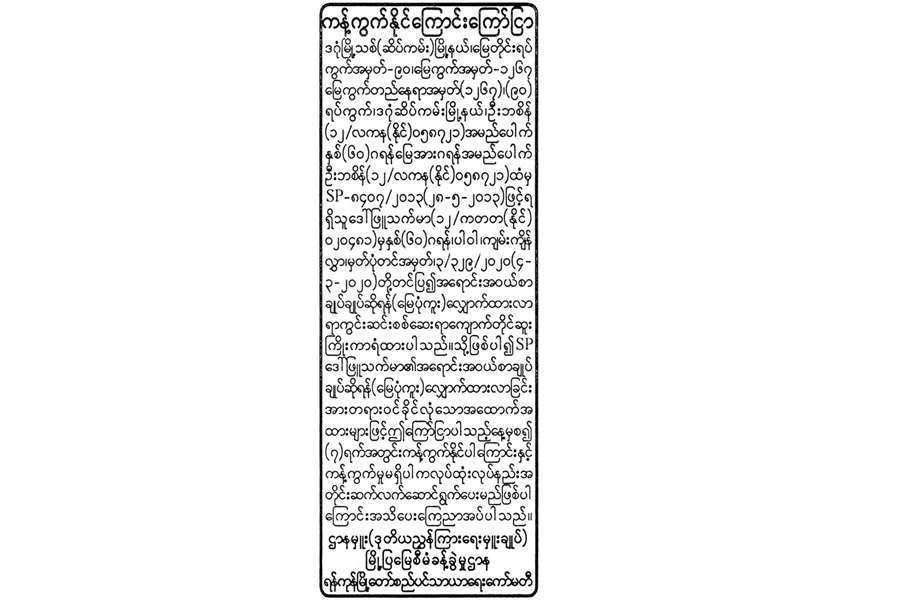 ကန့်ကွက်နိုင်ကြောင်းကြော်ငြာ
ဒဂုံမြို့သစ်(ဆိပ်ကမ်း)မြို့နယ်၊မြေတိုင်းရပ်
ကွက်အမှတ်-၉၀၊မြေကွက်အမှတ်-၁၂၆၇
မြေကွက်တည်နေရာအမှတ်(၁၂၆၇)၊(၉၀)
ရပ်ကွက်၊ဒဂုံဆိပ်ကမ်းမြို့နယ်၊ဦးဘစိန်
(၁၂/လကန(နိုင်)၀၅၈၇၂၁)အမည်ပေါက်
နှစ်(၆၀)ဂရန်မြေအားဂရန်အမည်ပေါက်
ဦးဘစိန်(၁၂/လကန(နိုင်)၀၅၈၇၂၁)ထံမှ
SP-၈၄၀၇/၂၀၁၃(၂၈-၅-၂၀၁၃)ဖြင့်ရ
ရှိသူဒေါ်ဖြူသက်မာ(၁၂/ကတတ(နိုင်)
၀၂၀၄၈၁)မှနှစ်(၆၀)ဂရန်၊ပါဝါ၊ကျမ်းကျိန်
လွှာ၊မှတ်ပုံတင်အမှတ်၊၃/၃၂၉/၂၀၂၀(၄-
၃-၂၀၂၀)တို့တင်ပြ၍အရောင်းအဝယ်စာ
ချုပ်ချုပ်ဆိုရန်(မြေပုံကူး)လျှောက်ထားလာ
ရာကွင်းဆင်းစစ်ဆေးရာကျောက်တိုင်ဆူး
ကြိုးကာရံထားပါသည်။သို့ဖြစ်ပါ၍SP
ဒေါ်ဖြူသက်မာ၏အရောင်းအဝယ်စာချုပ်
ချုပ်ဆိုရန်(မြေပုံကူး)လျှောက်ထားလာခြင်း
အားတရားဝင်ခိုင်လုံသောအထောက်အ
ထားများဖြင့်ဤကြော်ငြာပါသည့်နေ့မှစ၍
(၇)ရက်အတွင်းကန့်ကွက်နိုင်ပါကြောင်းနှင့်
ကန့်ကွက်မှုမရှိပါကလုပ်ထုံးလုပ်နည်းအ
တိုင်းဆက်လက်ဆောင်ရွက်ပေးမည်ဖြစ်ပါ
ကြောင်းအသိပေးကြေညာအပ်ပါသည်။
ဌာနမှူး(ဒုတိယညွှန်ကြားရေးမှူးချုပ်)
မြို့ပြမြေစီမံခန့်ခွဲမှုဌာန
ရန်ကုန်မြို့တော်စည်ပင်သာယာရေးကော်မတီ